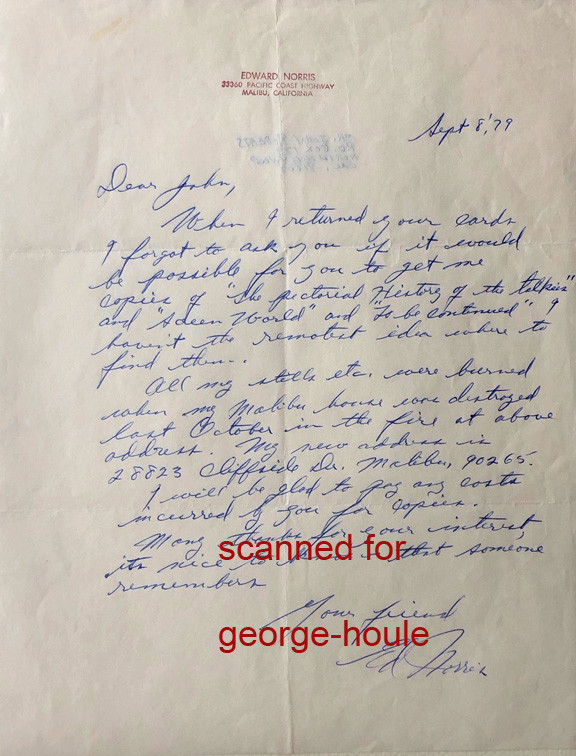 EDWARD NORRIS
33360 PACIFIC COAST HIGHWAY
MALIBU, CALIFORNIA
Sept 8, '79
Dear John,
When I returned your cards
I forgot to ask you if it would
be possible for you to get me
copies of "The pictorial History of the talkies"
and "Screen World" and "To be continued" I
haven't the remotest idea where to
find them.
All my stills etc. were burned
when my Malibu house was distroyed
last October in the fire at above
address. My new address is
28823 Cliffside Dr. Malibu, 90265.
I will be glad to pay any costs
incurred by you for copies.
Many thanks for your interest,
its nice to that someone
remembers
Your friend
Ed Norris
scanned for
george-houle